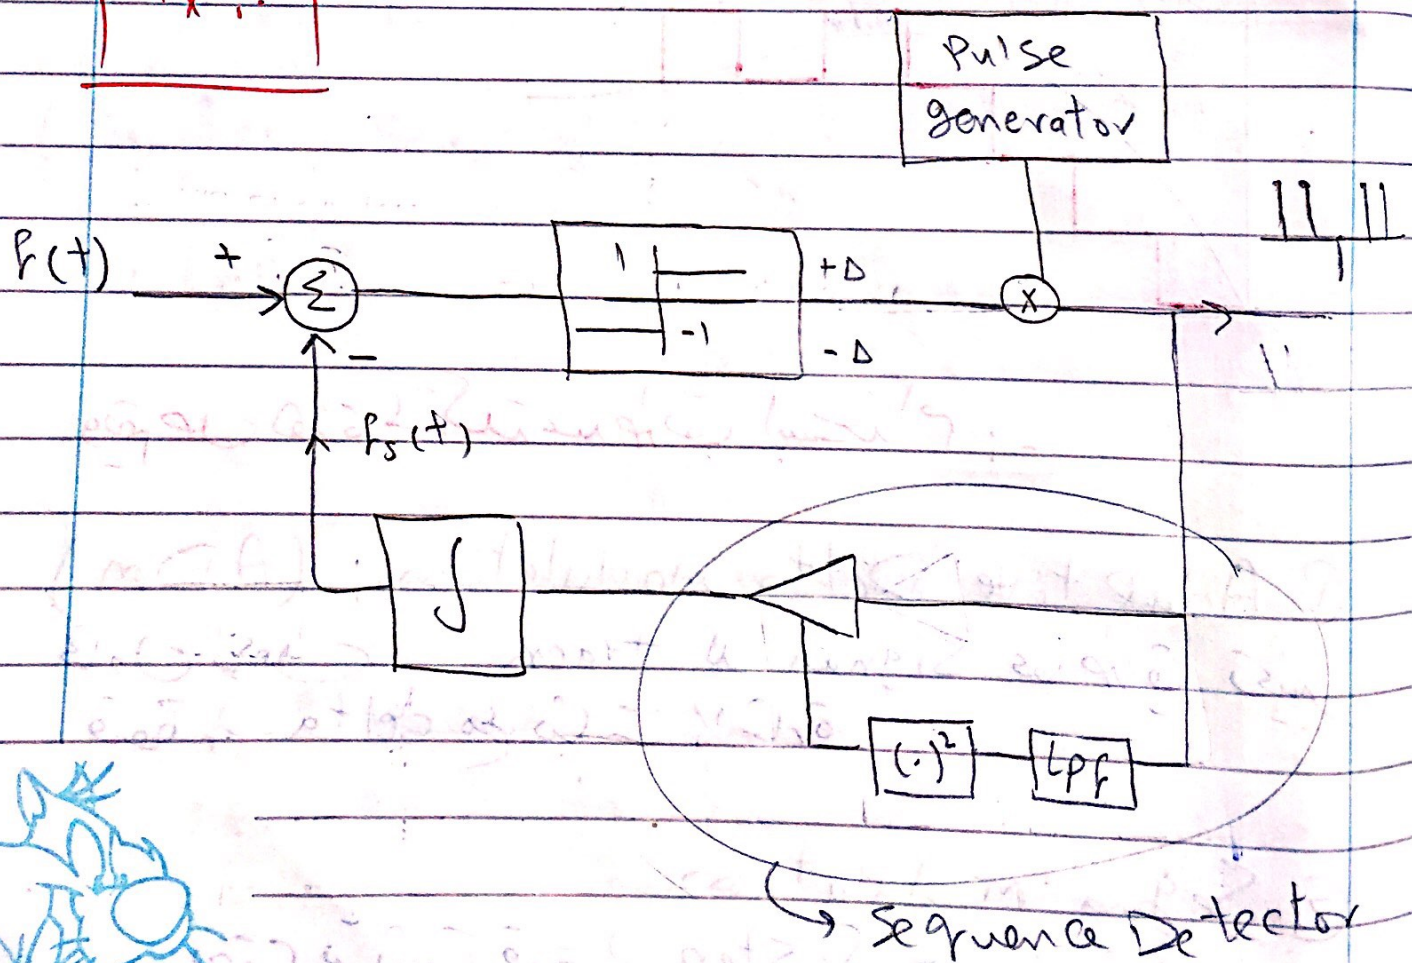 Pulse
generator
f(t)
+
Σ
1
-1
+Δ
-Δ
x
-
fs(t)
∫
(.)²
Lpf
Sequence Detector